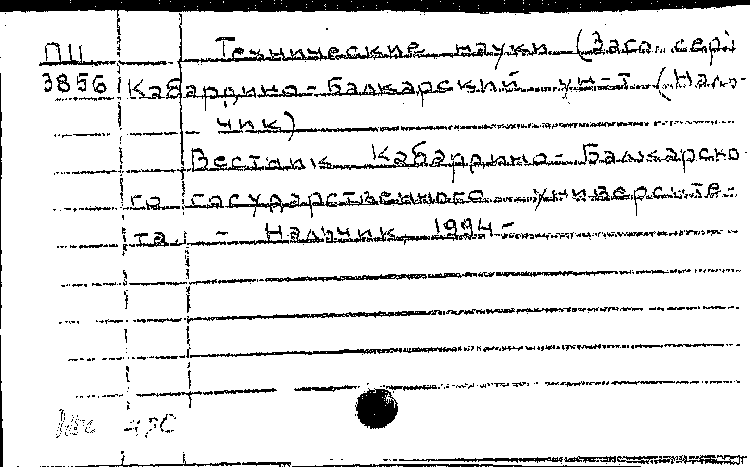 П11 Технические науки (Загл. сер)
3856 Кабардино-Балкарский ун-т (Наль-
чик)
Вестник Кабардино-Балкарско
го государственного университе-
та. - Нальчик, 1994-